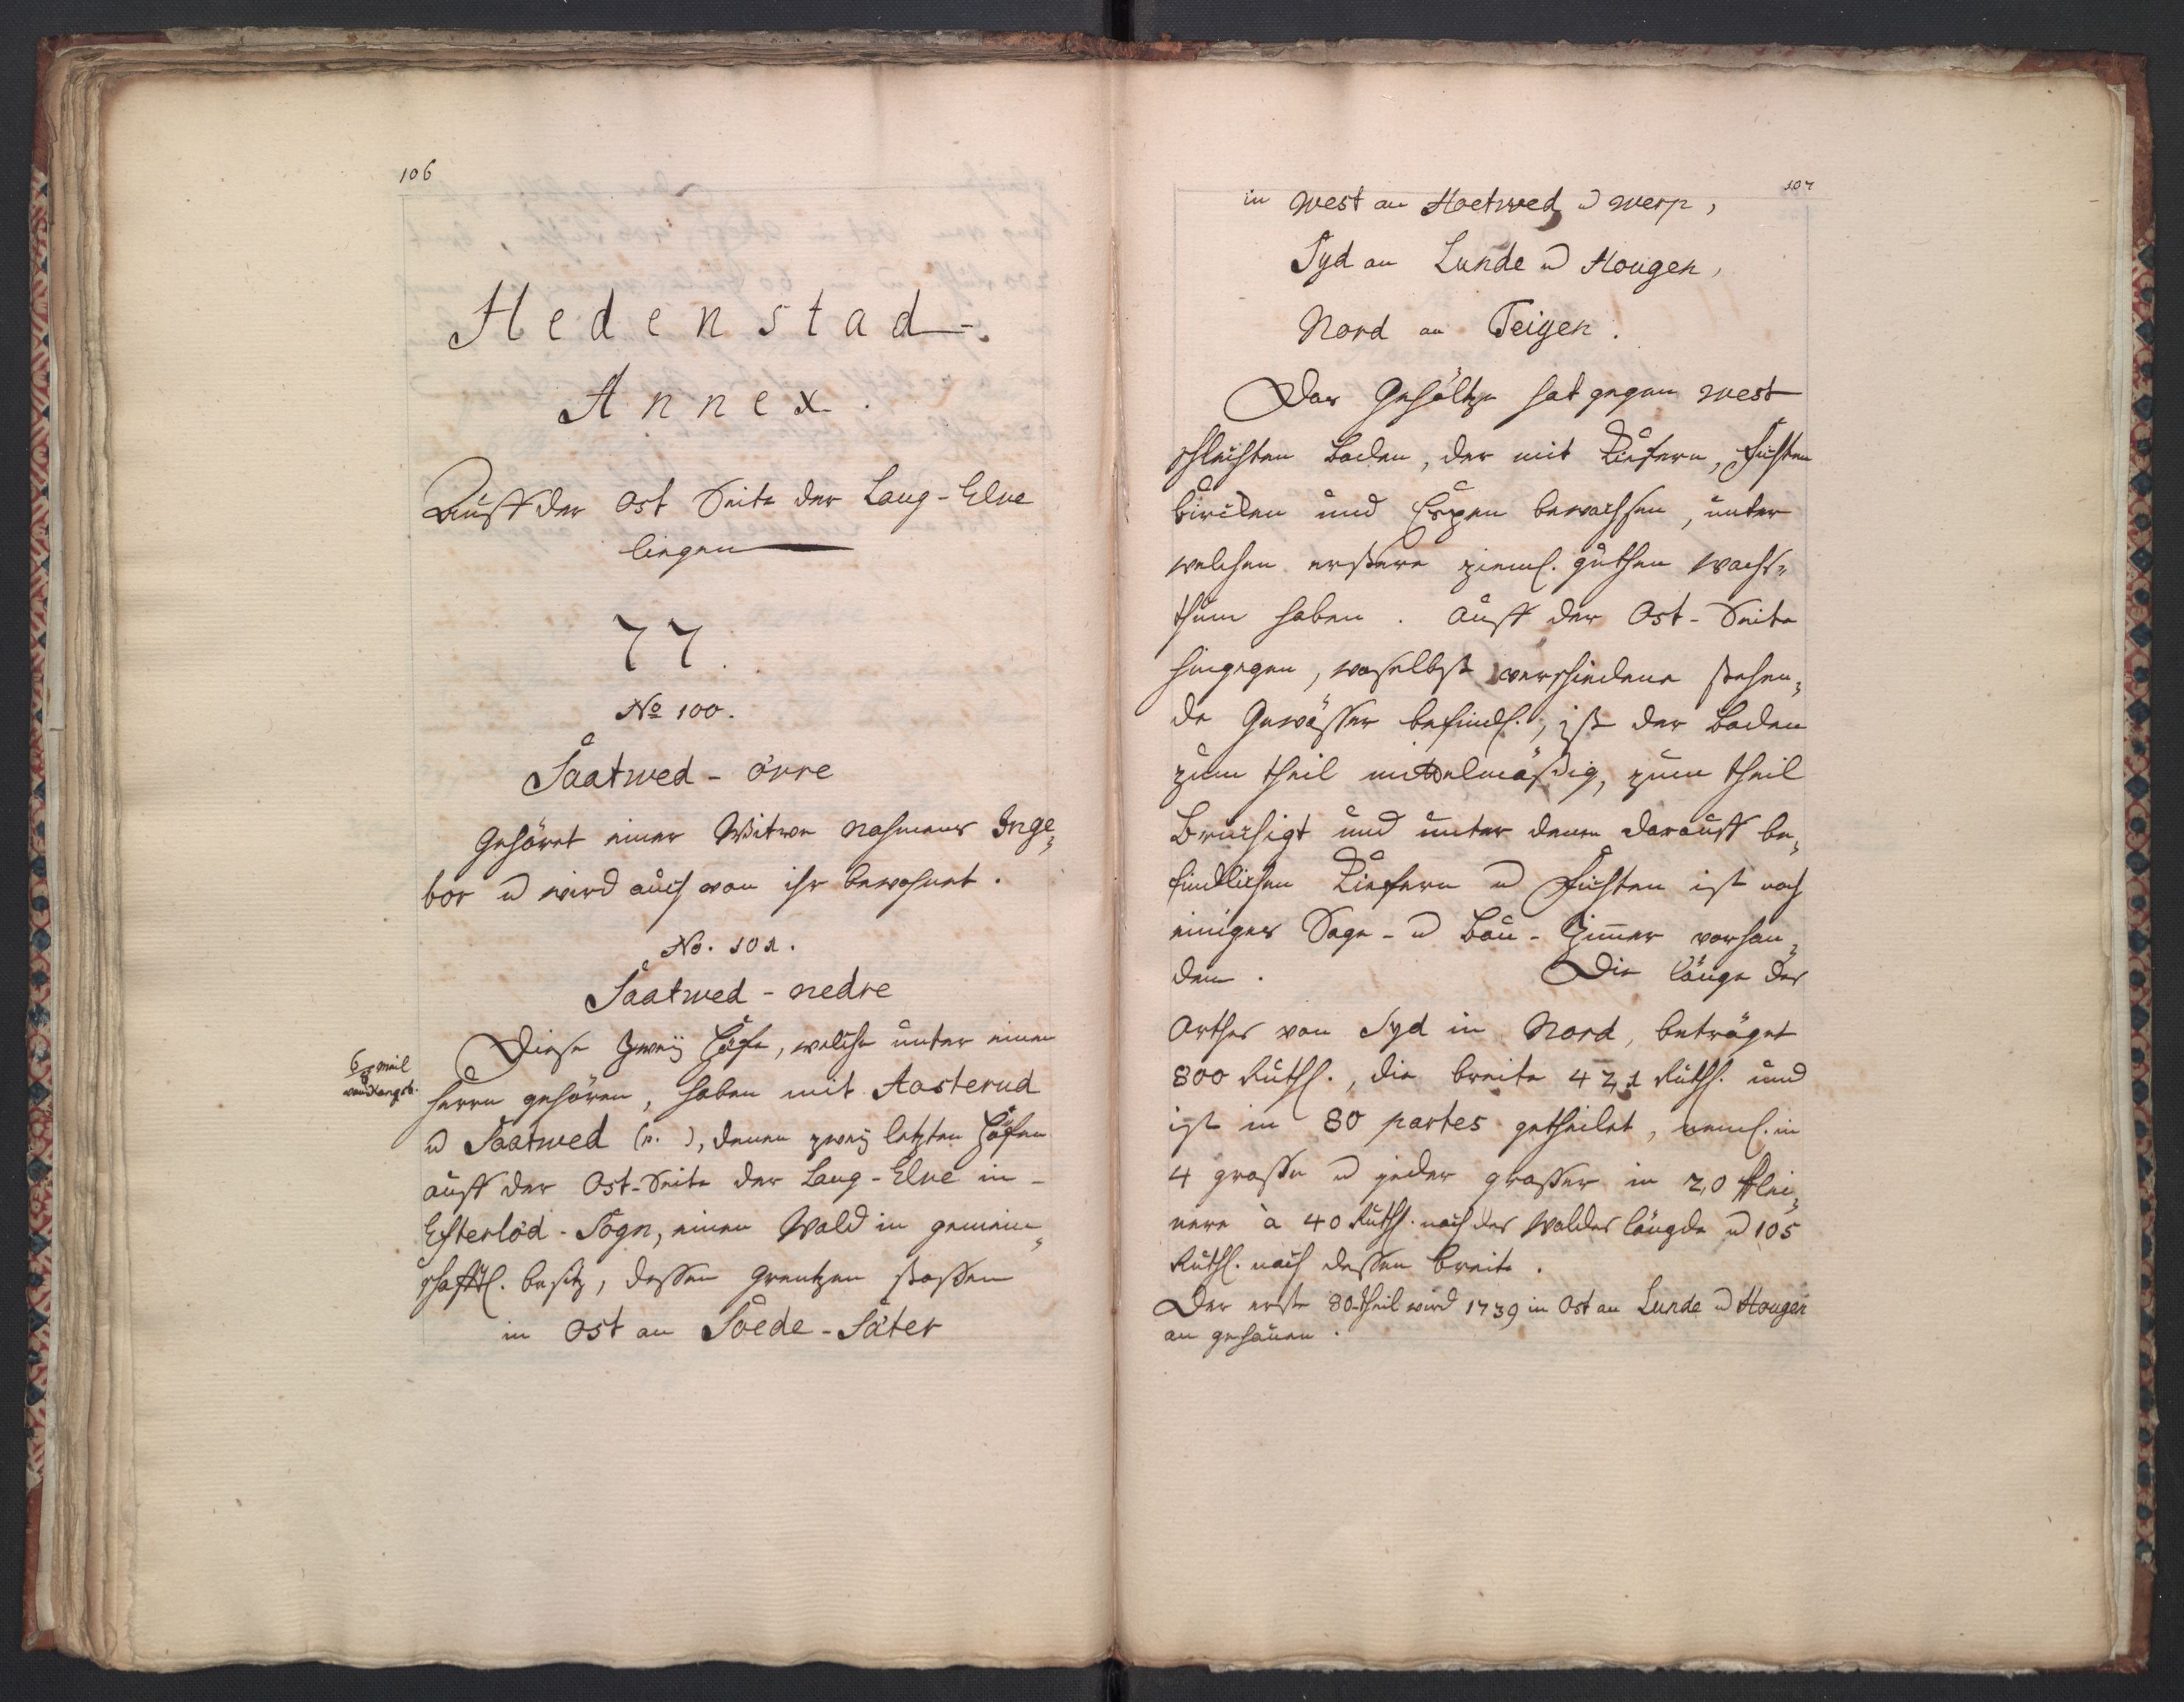 106
Hedenstad-
Annex.
Auff der Ost Seite der Laug-Elve
liegen
77.
No 100.
Saatwed - övre
Gehöret einer Witwe nahmens Inge,,
bor u wird auch von ihr bewohnet.
No. 101.
Saatwed - nedre
Diese Zweÿ Höfe, welche unter einen
6/8 meil
von Kongsb.
Herrn gehören, haben mit Aasterud
u Saatwed (n. ), denen zweÿ letzten Höfen
auff der Ost-Seite der Laug-Elve in -
Efterlöd-Sogn, einen Wald in gemein,,
schafftl. besitz, dessen Grentzen stossen
in Ost an Soede-Säter
107
in West an Hoetwed u Werp,
Syd an Lunde u Hougen,
Nord an Teigen.
Das Gehöltze hat gegen West
schlechten Boden, der mit Kiefern, Fichten
Bircken und Espen bewachsen, unter
welchen erstere zieml. guthen Wachs,,
thum haben. Auff der Ost-Seite
hingegen, woselbst verschiedene stehen,,
de Gewässer befindl., ist der Boden
zum theil mittelmässig, zum theil
Bruchigt und unter denen darauff be,,
findlichen Kiefern u Fichten ist noch
einiges Sage- u Bau-Zim̄er vorhan,,
den. Die länge des
Orthes von Syd in Nord, beträget
800 Ruth., die breite 421 Ruth. und
ist in 80 partes getheilet, neml. in
4 grosse u jeder grosser in 20 klei,,
nere à 40 Ruth. nach des Waldes längde u 105
Ruth. nach dessen breite.
Der erste 80-theil wird 1739 in Ost an Lunde u Hougen
an gehauen.